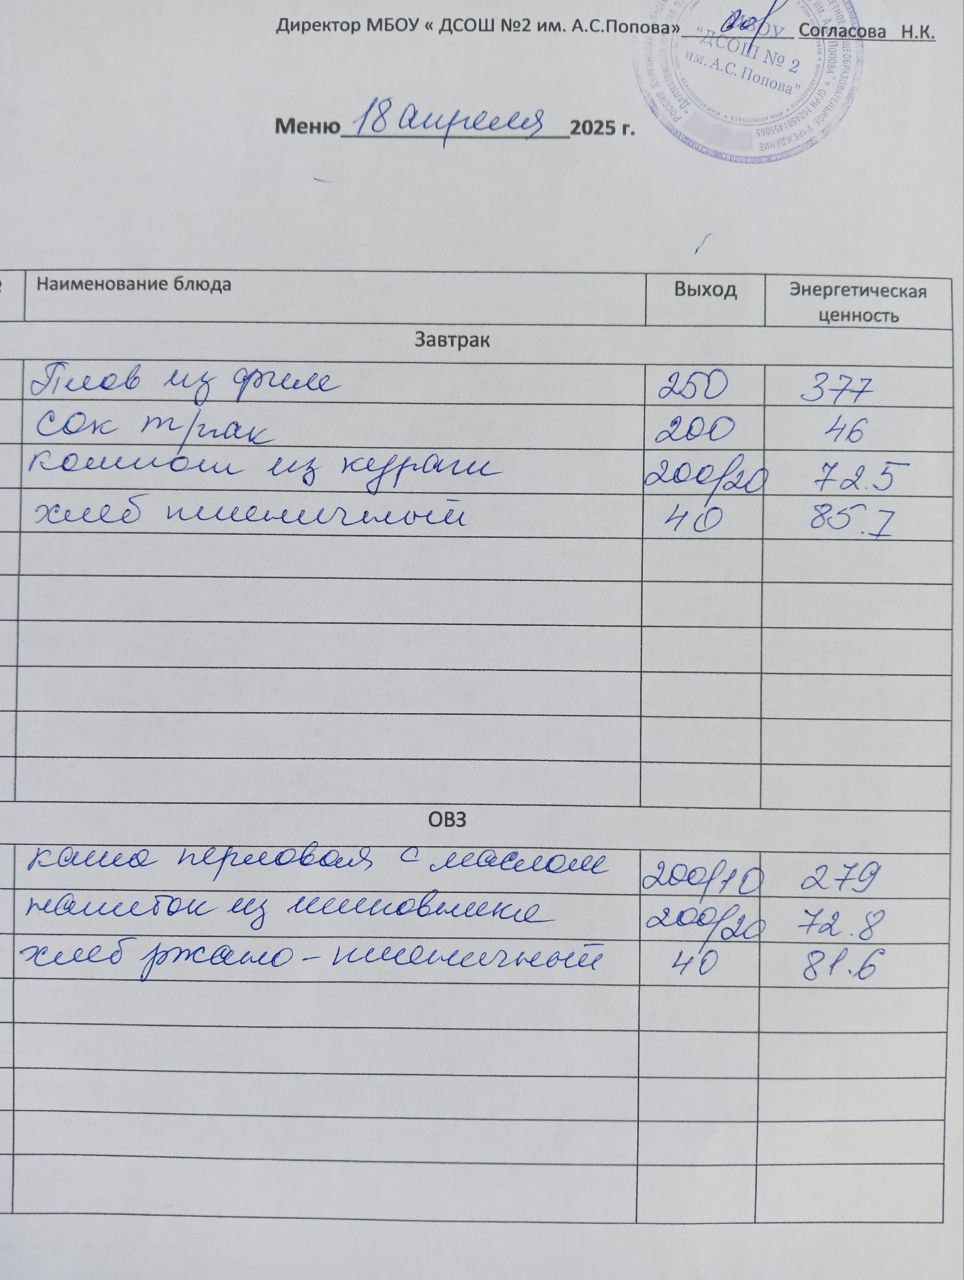 Директор МБОУ « ДСОШ №2 им. А.С.Попова» Согласова Н.К.
МБОУ
"ДСОШ № 2
им. А.С. Попова"
Меню 18 апреля 2025 г.
Наименование блюда Выход Энергетическая ценность
Завтрак
Плов из филе 250 377
сок т/пак 200 46
компот из кураги 200/20 72.5
хлеб пшеничный 40 85.7
ОВЗ
каша перловая с маслом 200/10 279
напиток из шиповника 200/20 72.8
хлеб ржано-пшеничный 40 81.6